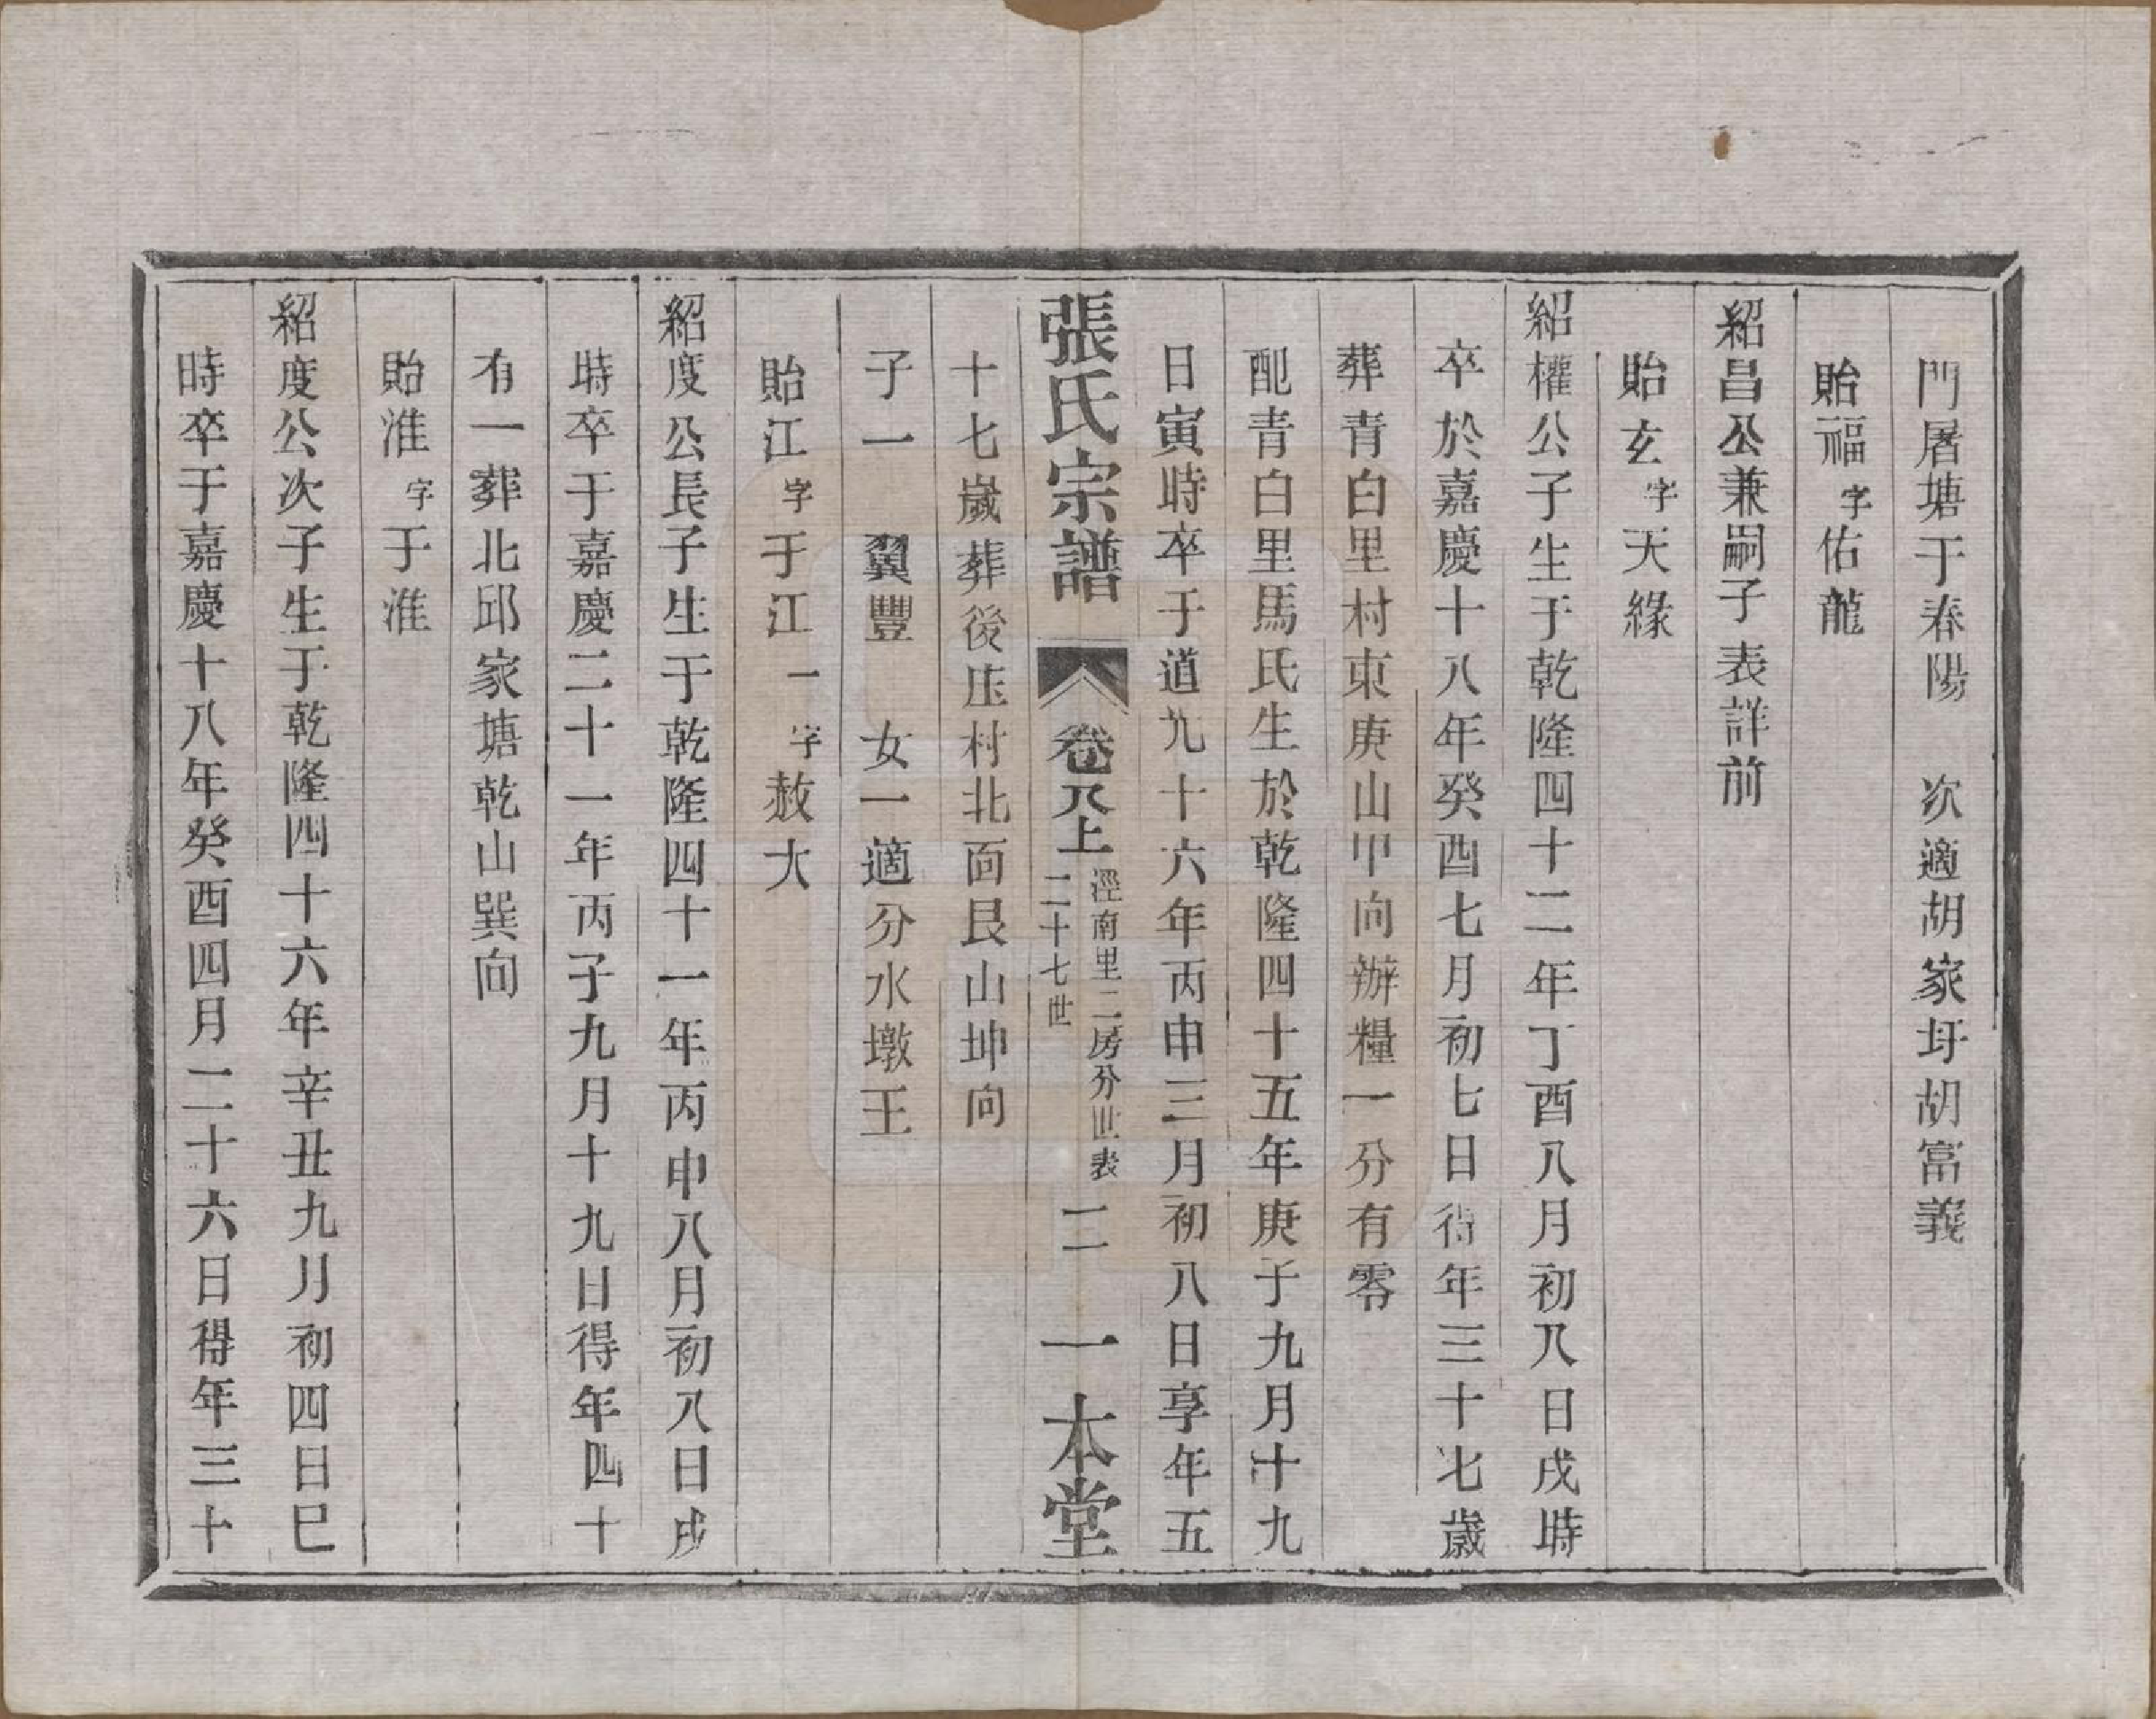 門屠塘于春陽　次適胡家圩胡富義
貽福字佑龍
紹昌公兼嗣子表詳前
貽玄字天緣
紹權公子生于乾隆四十二年丁酉八月初八日戌時
卒於嘉慶十八年癸酉七月初七日得年三十七歲
葬青白里村東庚山甲向辦糧一分有零
配青白里馬氏生於乾隆四十五年庚子九月十九
日寅時卒于道光十六年丙申三月初八日享年五
張氏宗譜　卷八上　涇南里二房分世表　二十七世　二　一本堂
十七歲葬後庄村北面艮山坤向
子一　翼豐　女一適分水墩王
貽江字于江一字赦大
紹度公長子生于乾隆四十一年丙申八月初八日戌
時卒于嘉慶二十一年丙子九月十九日得年四十
有一葬北邱家塘乾山巽向
貽淮字于淮
紹度公次子生于乾隆四十六年辛丑九月初四日巳
時卒于嘉慶十八年癸酉四月二十六日得年三十